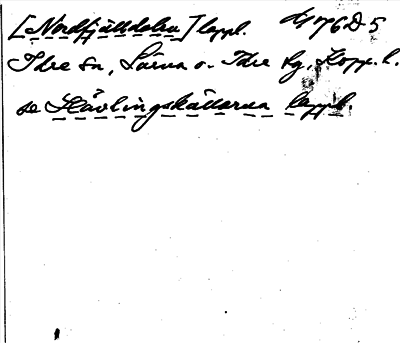 [Nordfjälldalen] lappl. 4476D 5
Idre sn, Särna o. Idre tg, Kopp. l.
se Hävlingskällarna lappl.